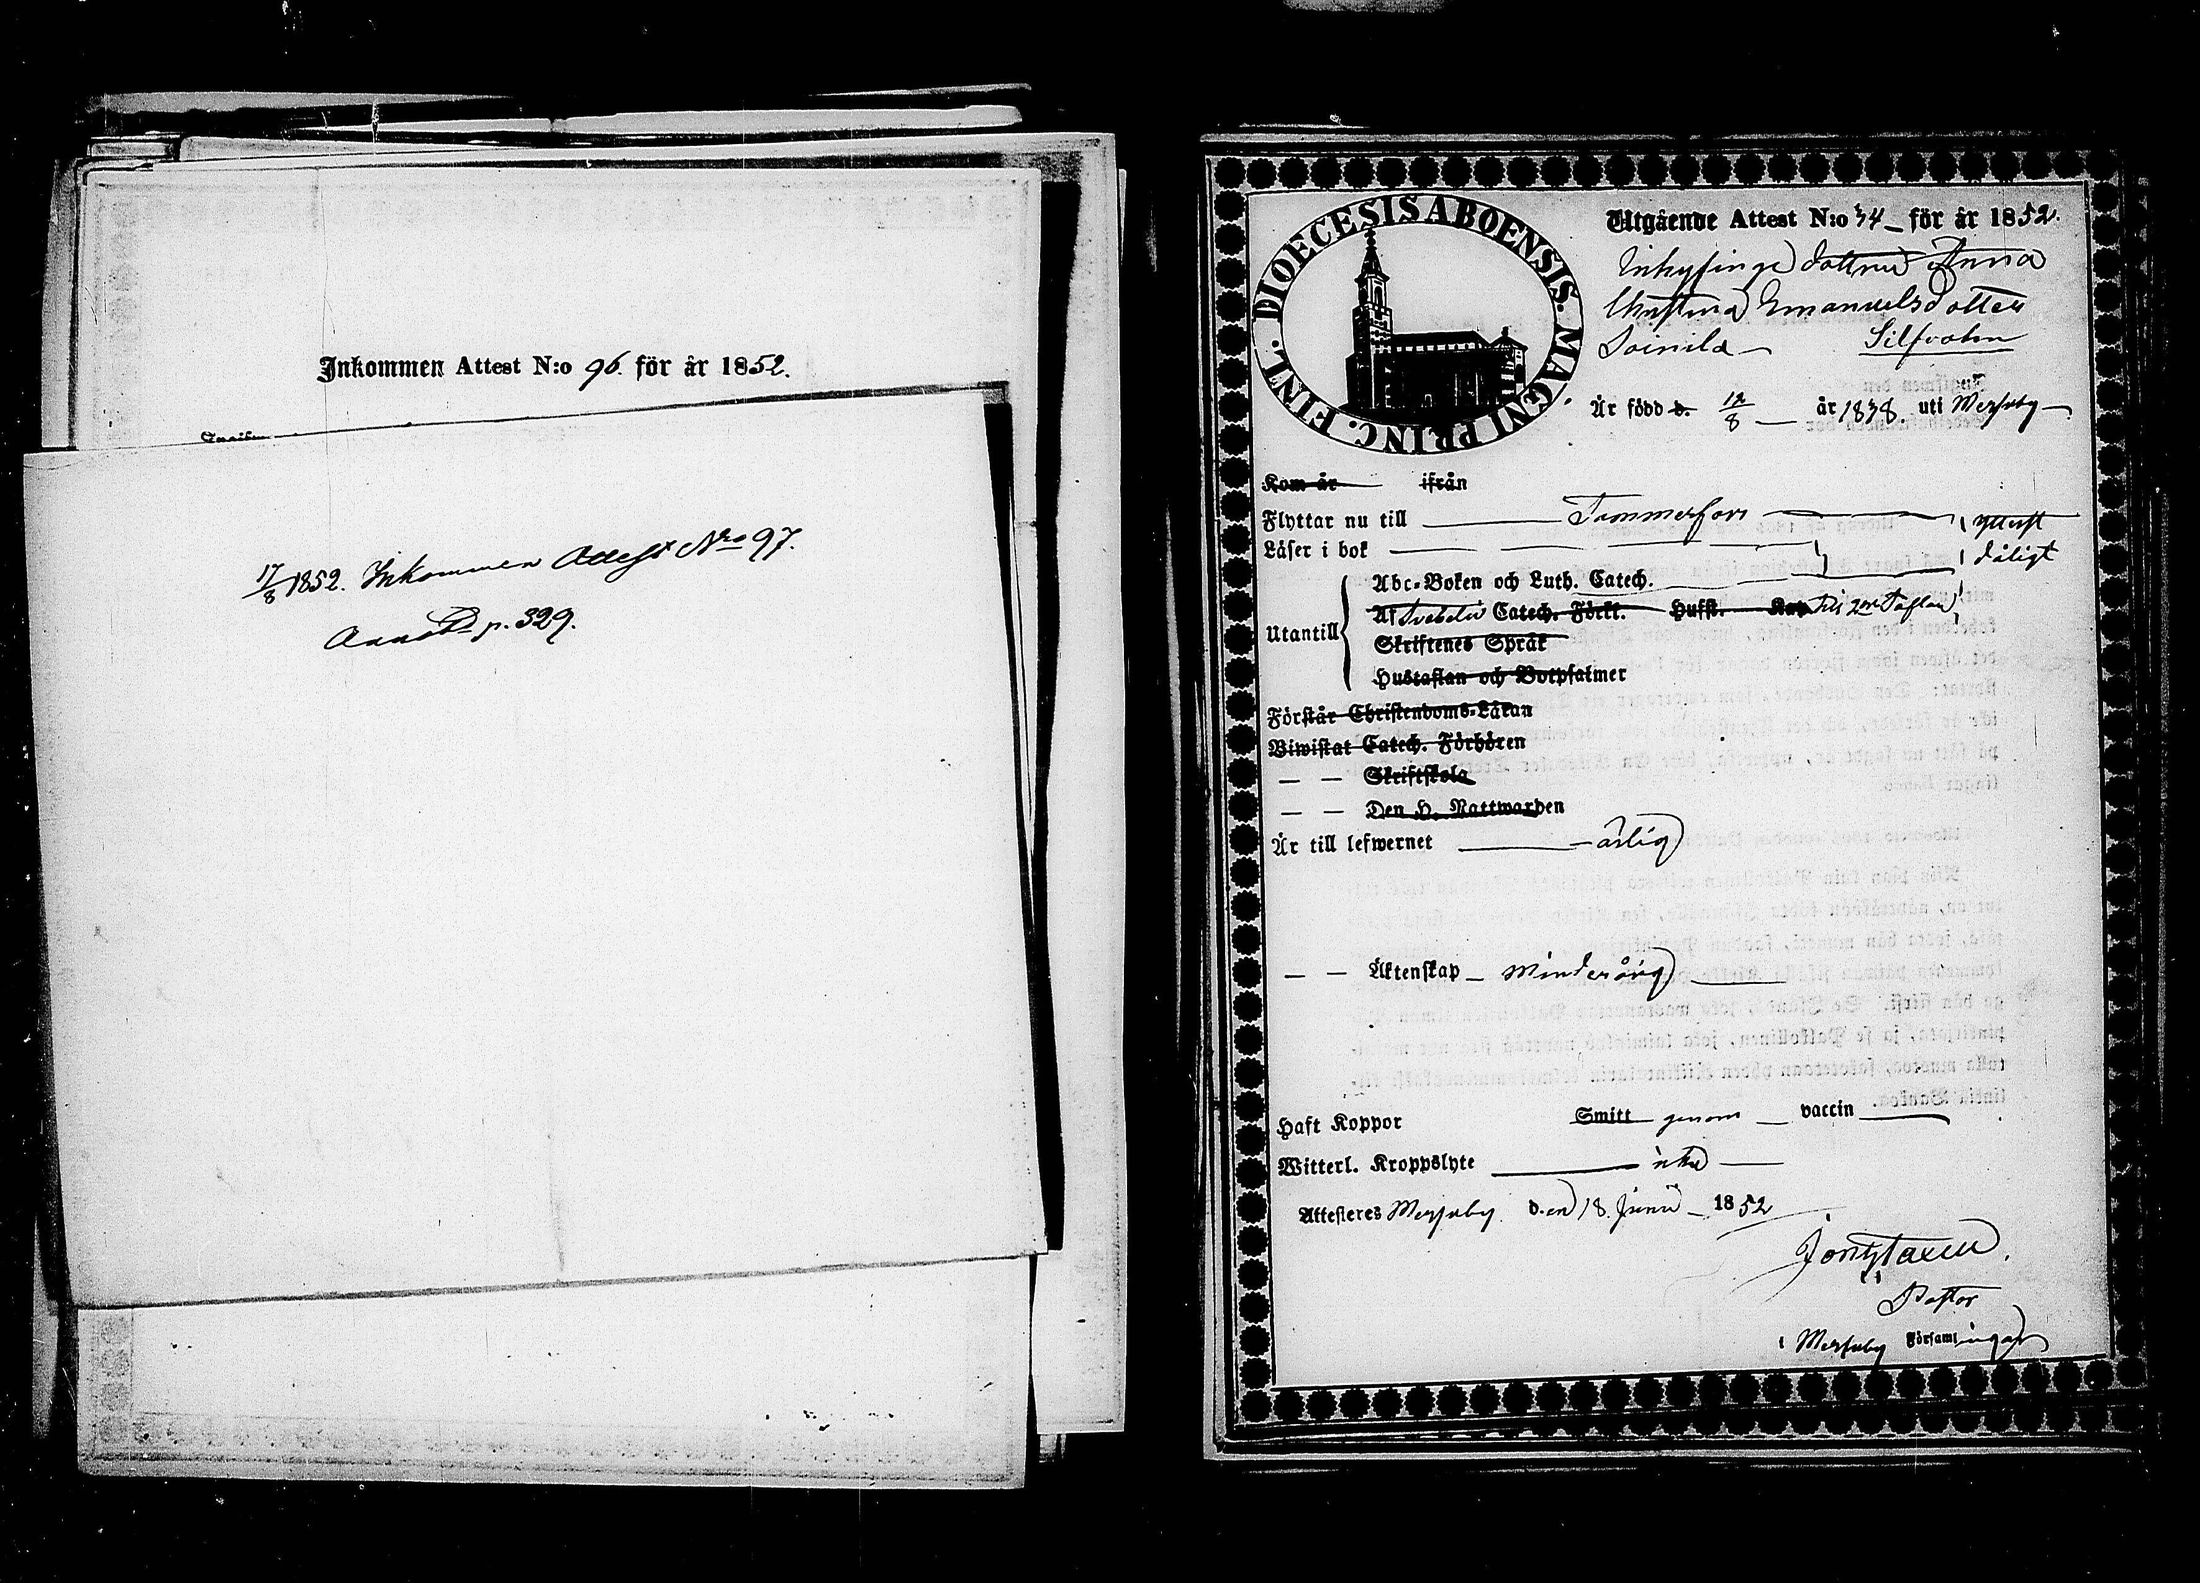 Inkommen Attest N:o 96. för år 1852.
17/8 1852. Inkommen Attest No 97.
p. 329.
DIOECESIS ABOENSIS. MAGNI PRINC. FINL.
Utgående Attest N:o 34 för år 1852.
Inhysinge dottren Anna
Christina Emanuelsdotter
Soinila Silfvolin
Är född d. 12/8 år 1838. uti Messuby
Kom år ifrån
Flyttar nu till Tammerfors
Läser i bok
ytterst
dåligt
Utantill
Abc-Boken och Luth. Catech.
Af Svebelii Catech. Förkl. Husst. till 2dra Taflan
Skriftenes Språk
Hustaflan och Botpsalmer
Förstår Christendoms-Läran
Biwistat Catech. Förhören
— — Skriftskola
— — Den H. Nattwarden
Är till lefwernet ärlig
— — Äktenskap minderårig
Haft Koppor Smitt genom vaccin
Witterl. Kroppslyte icke
Attesteres Messuby den 18 Junii 1852
Pastor
i Messuby Församlingar